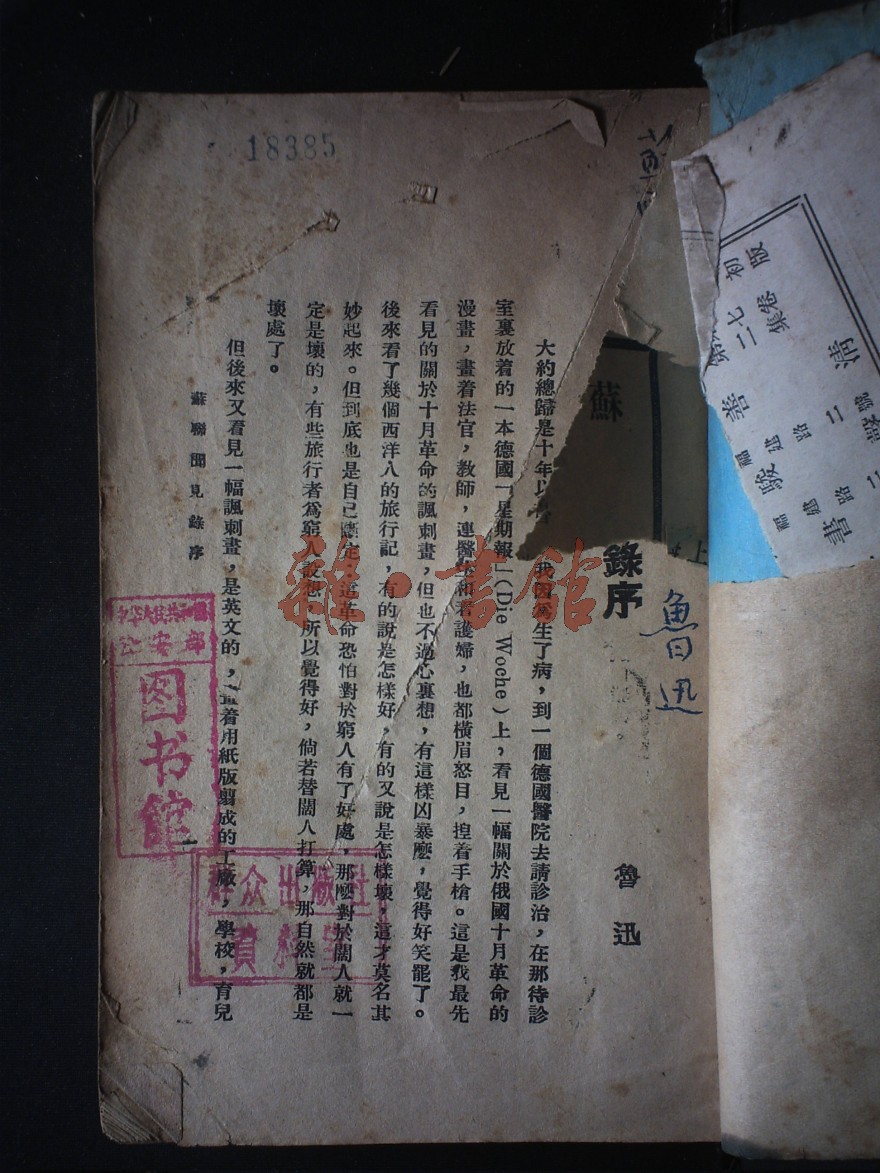 18385
蘇
錄序
魯迅
魯迅
大約總歸是十年以
我因爲生了病，到一個德國醫院去請診治，在那待診
室裏放着的一本德國「一星期報」（Die Woche）上，看見一幅關於俄國十月革命的
漫畫，畫着法官，教師，連醫生和看護婦，也都橫眉怒目，捏着手槍。這是我最先
看見的關於十月革命的諷刺畫，但也不過心裏想，有這樣凶暴麽，覺得好笑罷了。
後來看了幾個西洋人的旅行記，有的說是怎樣好，有的又說是怎樣壞，這才莫名其
妙起來。但到底也是自己斷定：這革命恐怕對於窮人有了好處，那麽對於闊人就一
定是壞的，有些旅行者爲窮人設想，所以覺得好，倘若替闊人打算，那自然就都是
壞處了。
但後來又看見一幅諷刺畫，是英文的，畫着用紙版剪成的工廠，學校，育兒
蘇聯聞見錄序
一
中华人民共和國
公安部
图书馆
群众出版社
資料室
雜·書館
初版
福建路